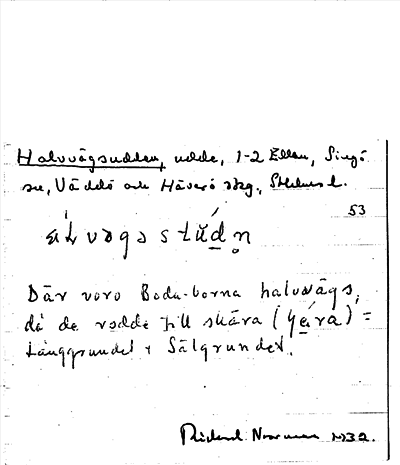 Halvvägsudden, udde, 1-2 Ellan, Singö
sn, Väddö och Häverö skg., Sthlms l.
53
Där voro Boda-borna halvvägs,
då de rodde till skära (
) =
Långgrundet + Sälgrundet.
Rickard Norman 1932.